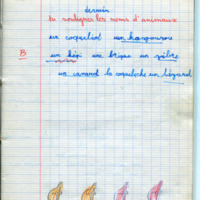 dessin
Tu soulignes les noms d'animaux
un coquelicot un kangourou
B
un képi une brique un zèbre
un canard la coqueluche un lézard